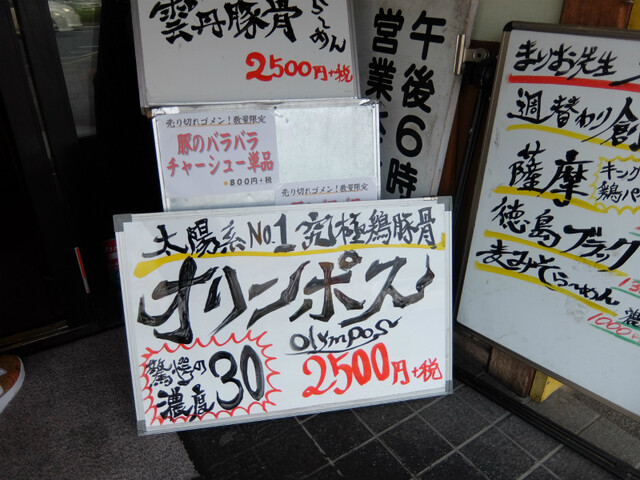 雲丹豚骨らーめん
2500円+税
午後6時
営業
売り切れゴメン！数量限定
豚のバラバラ
チャーシュー単品
●800円+税
売り切れゴメン！数量限定
太陽系No.1究極鶏豚骨
オリンポス
olympos
驚愕の
濃度30
2500円+税
まりお先生
週替わり創
薩摩
キング
鶏パ
徳島ブラック
麦みそらーめん
1000